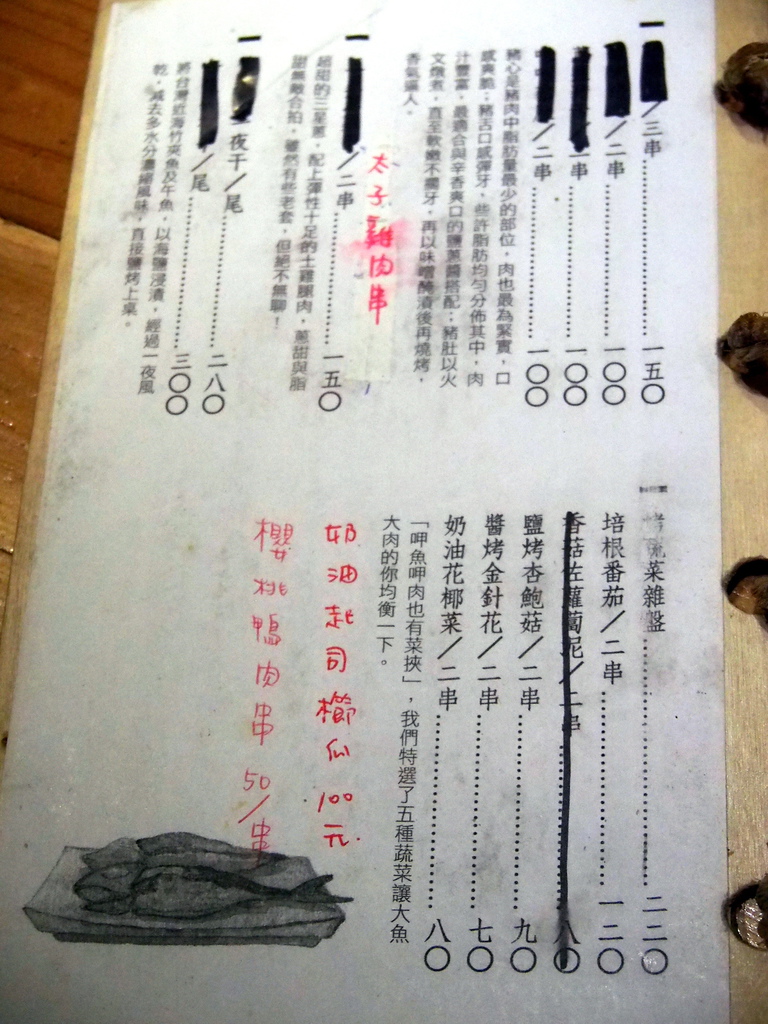 ／三串 一五〇
／二串 一〇〇
／二串 一〇〇
／二串 一〇〇
豬心是豬肉中脂肪量最少的部位，肉也最為緊實，口
感爽脆；豬舌口感彈牙，些許脂肪均勻分佈其中，肉
汁豐富，最適合與辛香爽口的鹽蔥醬搭配；豬肚以火
文燉煮，直至軟嫩不膩牙，再以味噌醃漬後再燒烤，
香氣逼人。
太子雞肉串
／二串 一五〇
超甜的三星蔥，配上彈性十足的土雞腿肉，蔥甜與脂
甜無敵合拍，雖然有些老套，但絕不無聊！
一夜干／尾 二八〇
／尾 三〇〇
將台灣近海竹筴魚及午魚，以海鹽浸漬，經過一夜風
乾，減去多水分濃縮風味，直接鹽烤上桌。
烤蔬菜雜盤 二二〇
培根番茄／二串 一二〇
香菇佐蘿蔔泥／二串 八〇
鹽烤杏鮑菇／二串 九〇
醬烤金針花／二串 七〇
奶油花椰菜／二串 八〇
「呷魚呷肉也有菜挾」，我們特選了五種蔬菜讓大魚
大肉的你均衡一下。
奶油起司櫛瓜 100元
櫻桃鴨肉串 50/串